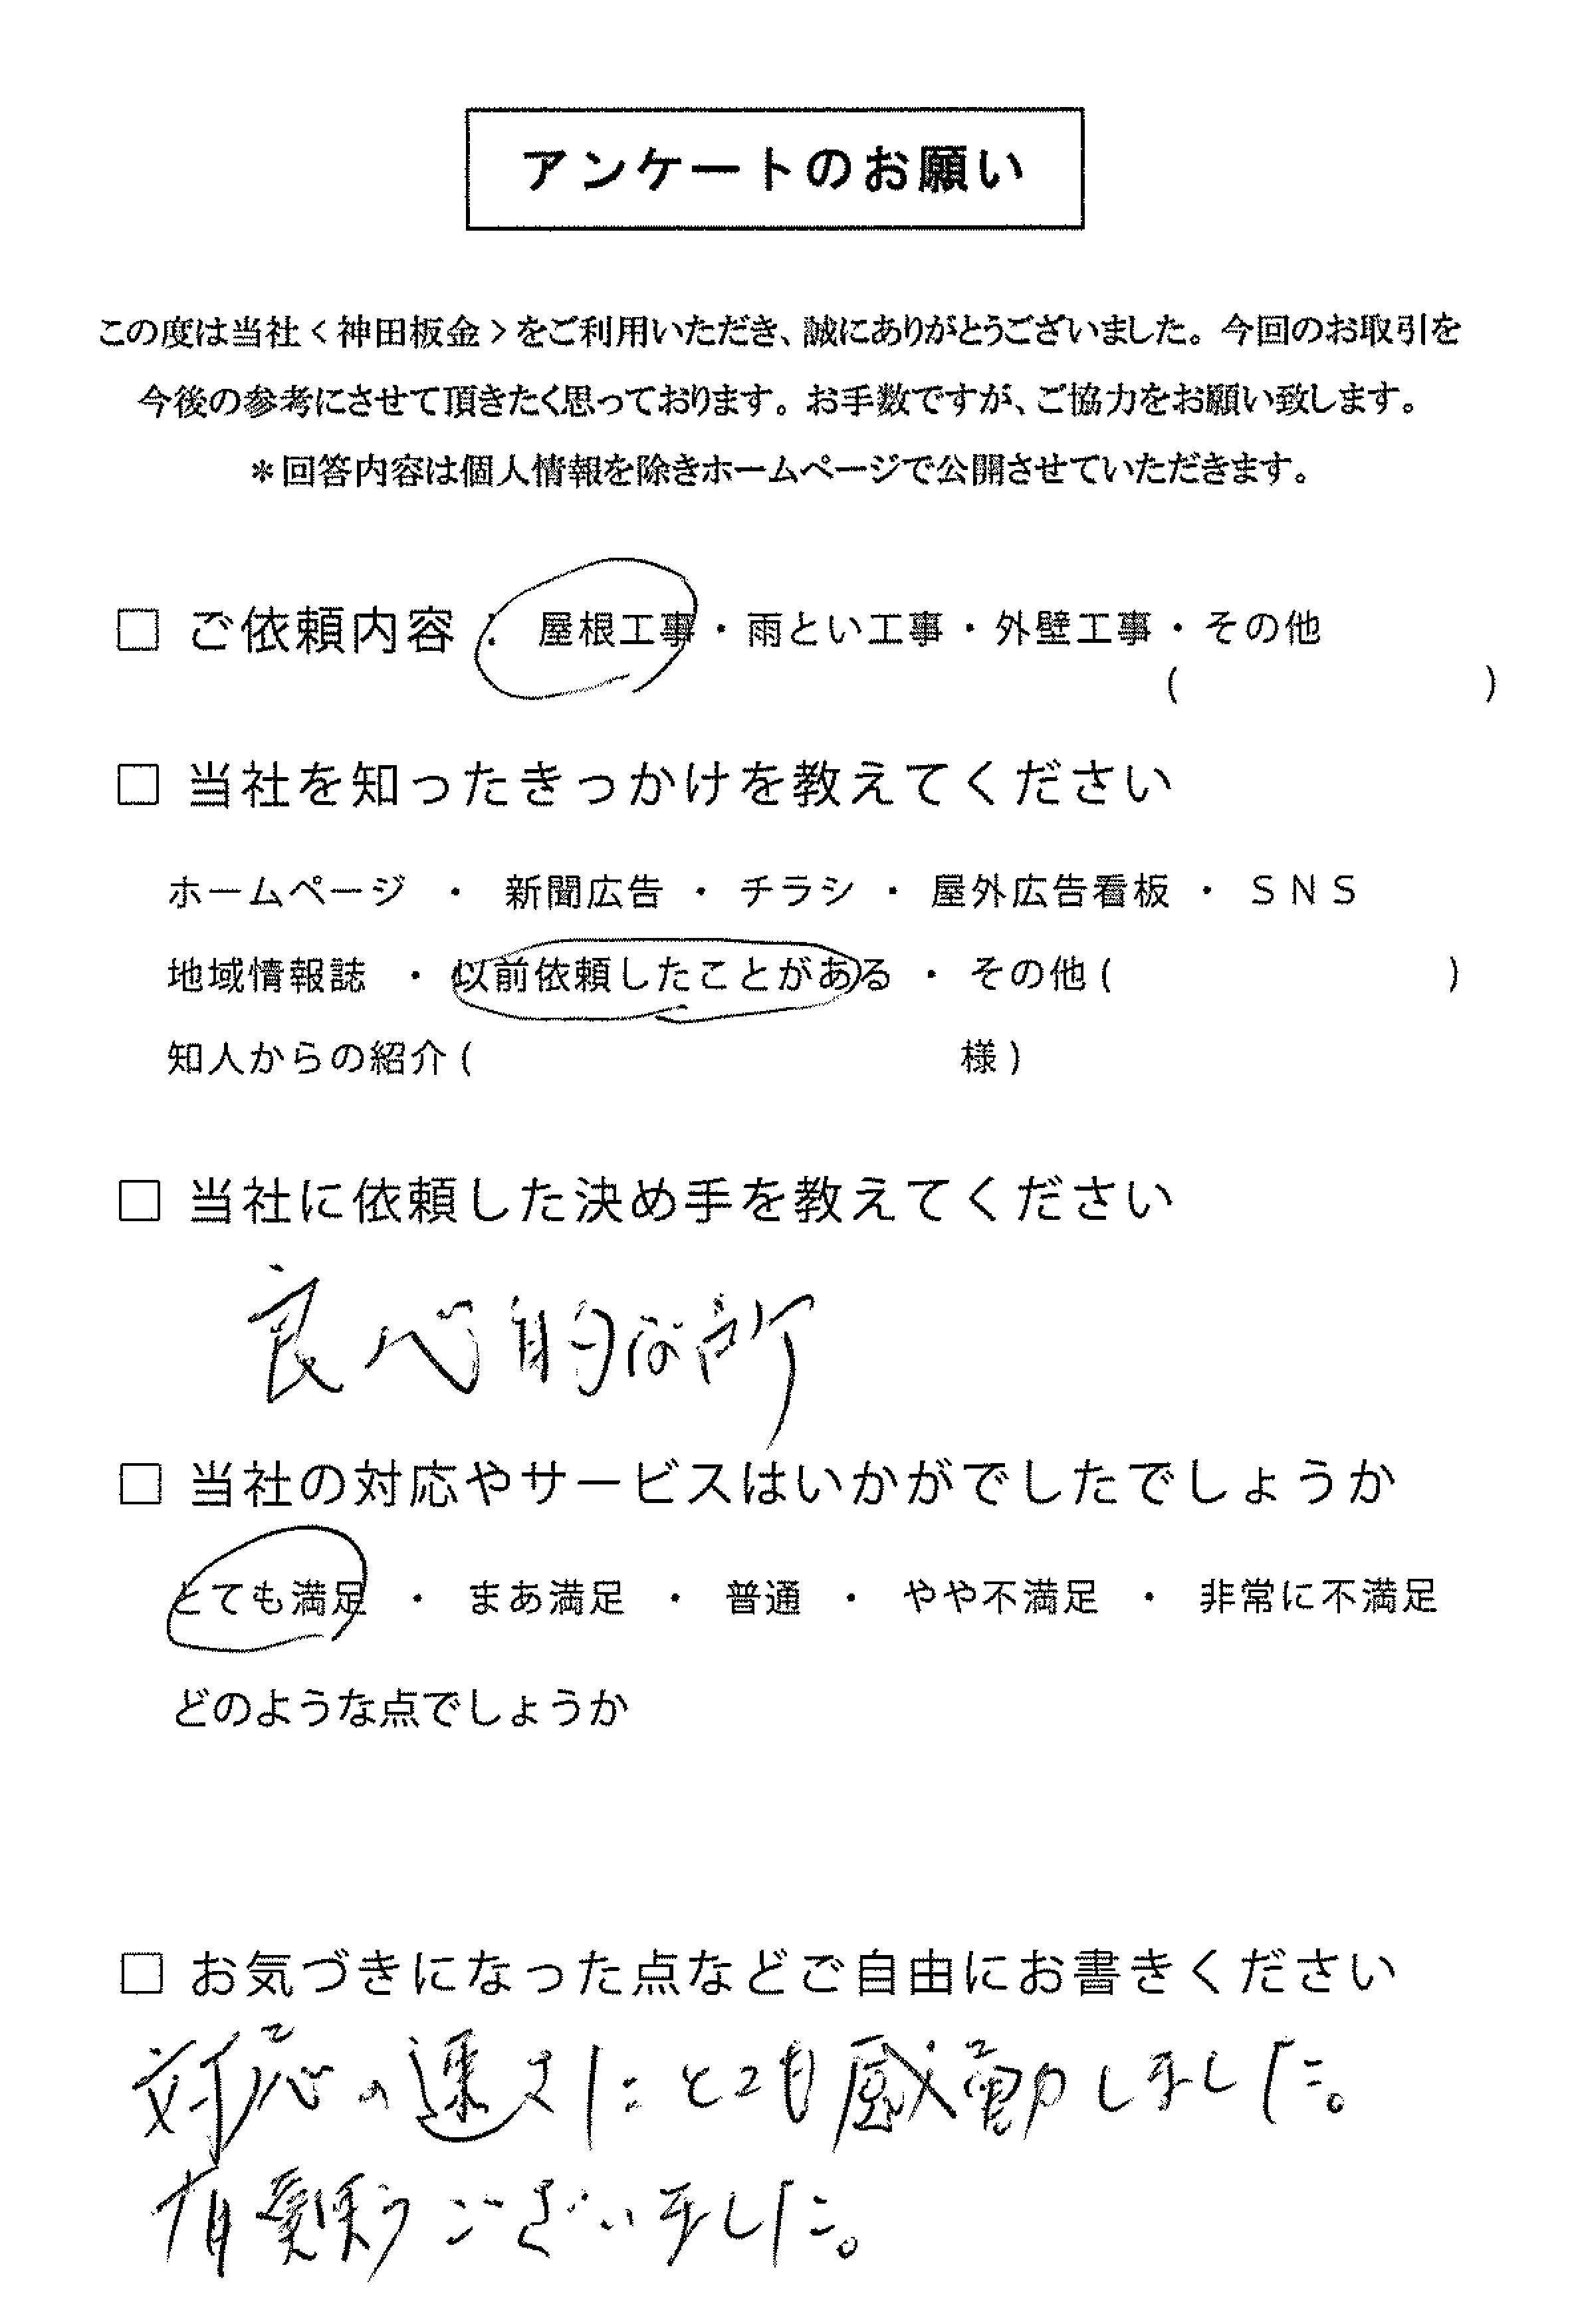 アンケートのお願い
この度は当社<神田板金>をご利用いただき、誠にありがとうございました。今回のお取引を
今後の参考にさせて頂きたく思っております。お手数ですが、ご協力をお願い致します。
*回答内容は個人情報を除きホームページで公開させていただきます。
□ ご依頼内容： 屋根工事・雨とい工事・外壁工事・その他
( )
□ 当社を知ったきっかけを教えてください
ホームページ ・ 新聞広告 ・ チラシ ・ 屋外広告看板 ・ SNS
地域情報誌 ・ 以前依頼したことがある ・ その他( )
知人からの紹介( 様)
□ 当社に依頼した決め手を教えてください
良心的な所
□ 当社の対応やサービスはいかがでしたでしょうか
とても満足 ・ まあ満足 ・ 普通 ・ やや不満足 ・ 非常に不満足
どのような点でしょうか
□ お気づきになった点などご自由にお書きください
対応の速さにとても感動しました。
有難うございました。